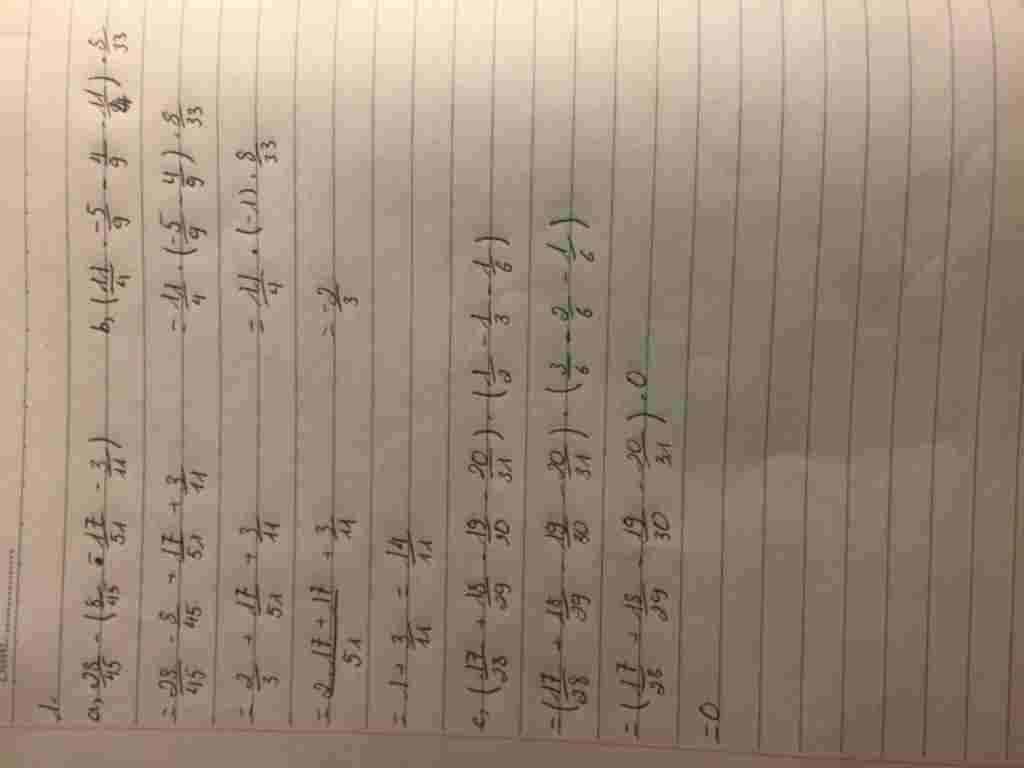 1.
a, 38/45 - (8/45 - -17/51 - 3/11)
= 38/45 - 8/45 + 17/51 + 3/11
= 2/3 + 17/51 + 3/11
= 2.17+17/51 + 3/11
= 1 + 3/11 = 14/11
b, (11/4 . -5/9 - 4/9 . 11/4) . 8/33
= 11/4 . (-5/9 - 4/9) . 8/33
= 11/4 . (-1) . 8/33
= -2/3
c, (17/28 + 18/29 - 19/30 - 20/31) . (1/2 - 1/3 - 1/6)
= (17/28 + 18/29 - 19/30 - 20/31) . (3/6 - 2/6 - 1/6)
= (17/28 + 18/29 - 19/30 - 20/31) . 0
= 0